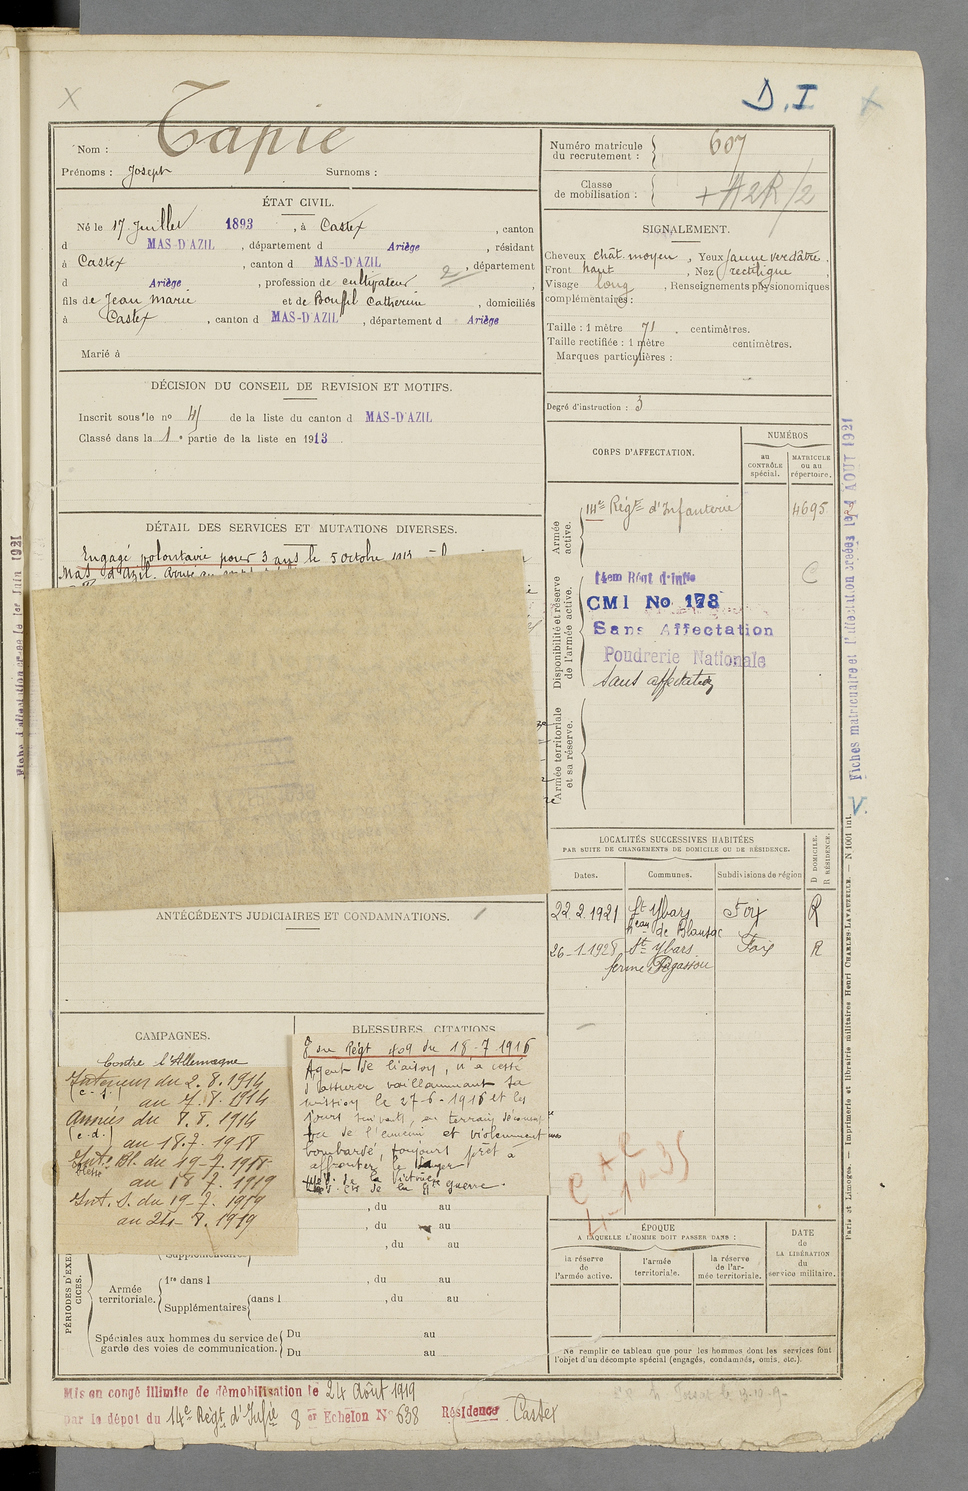 D.I
Nom : Tapie
Prénoms : Joseph Surnoms :
Numéro matricule du recrutement : 607
Classe de mobilisation :
ÉTAT CIVIL.
Né le 17 Juillet 1893, à Castex, canton
d MAS-D'AZIL, département d Ariège, résidant
à Castex, canton d MAS-D'AZIL, département
d Ariège, profession de cultivateur,
fils de Jean Marie et de Bouffil Catherine, domiciliés
à Castex, canton d MAS-D'AZIL, département d Ariège
Marié à
SIGNALEMENT.
Cheveux chât. moyen, Yeux jaune verdâtre.
Front haut, Nez rectiligne
Visage long, Renseignements physionomiques
complémentaires :
Taille : 1 mètre 71 centimètres.
Taille rectifiée : 1 mètre centimètres.
Marques particulières :
Degré d'instruction : 3
DÉCISION DU CONSEIL DE REVISION ET MOTIFS.
Inscrit sous le no 41 de la liste du canton d MAS-D'AZIL
Classé dans la 1e partie de la liste en 1913.
DÉTAIL DES SERVICES ET MUTATIONS DIVERSES.
Engagé volontaire pour 3 ans le 5 octobre 1913
Mas d'Azil.
CORPS D'AFFECTATION.
NUMÉROS
au CONTRÔLE spécial.
MATRICULE ou au répertoire.
Armée active.
14e Régt d'Infanterie 4695
C
Disponibilité et réserve de l'armée active.
14em Régt d'Infie
CMI No 178
Sans Affectation
Poudrerie Nationale
Sans affectation
Armée territoriale et sa réserve.
LOCALITÉS SUCCESSIVES HABITÉES
PAR SUITE DE CHANGEMENTS DE DOMICILE OU DE RÉSIDENCE.
Dates. Communes. Subdivisions de région
D DOMICILE. R RÉSIDENCE.
22.2.1921 St Ybars Foix R
heau de Blansac
26-1.1928 St Ybars Foix R
ferme Pégassou
ANTÉCÉDENTS JUDICIAIRES ET CONDAMNATIONS.
CAMPAGNES.
Contre l'Allemagne
Intérieur du 2.8.1914
(c.s.) au 7.8.1914
Armées du 8.8.1914
(c.d.) au 18.7.1918
Int. Bl. du 19-7.1918
au 18 7.1919
Int. S. du 19-7.1919
au 24-8.1919
BLESSURES, CITATIONS
du Régt 409 du 18-7 1916
Agent de liaison, n'a cessé
d'assurer vaillamment sa
mission le 27-6-1916 et les
jours suivants, en terrain
de l'ennemi et violemment
bombardé, toujours prêt à
affronter le danger
de la Victoire
de la guerre.
CAC
4-10-35
ÉPOQUE
A LAQUELLE L'HOMME DOIT PASSER DANS :
la réserve de l'armée active.
l'armée territoriale.
la réserve de l'armée territoriale.
DATE de LA LIBÉRATION du service militaire.
Ne remplir ce tableau que pour les hommes dont les services font
l'objet d'un décompte spécial (engagés, condamnés, omis, etc.).
PÉRIODES D'EXERCICES.
, du au
, du au
Supplémentaires , du au
Armée territoriale.
1re dans l , du au
Supplémentaires dans l , du au
Spéciales aux hommes du service de garde des voies de communication.
Du au
Du au
Mis en congé illimité de démobilisation le 24 Août 1919
par le dépot du 14e Régt d'Infie 8 er Echelon N° 638 Résidence Castex
Fiches matriculaire et l'affectation créées le 4 AOUT 1921
Fiche d'affectation créée le 1er Juin 1921
V.
Paris et Limoges. — Imprimerie et librairie militaires Henri CHARLES-LAVAUZELLE. — N 1001 int.